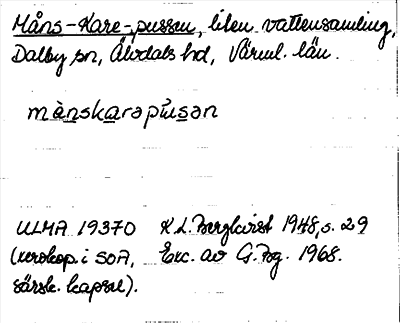 Måns-Kare-pussen, liten vattensamling,
Dalby sn, Älvdals hd, Värml. län.
mànskarəpúsən
ULMA 19370 K.L. Bergkvist 1948, s. 29
(xerokop. i SOA, Exc. av G. Bg. 1968.
särsk. kapsel).